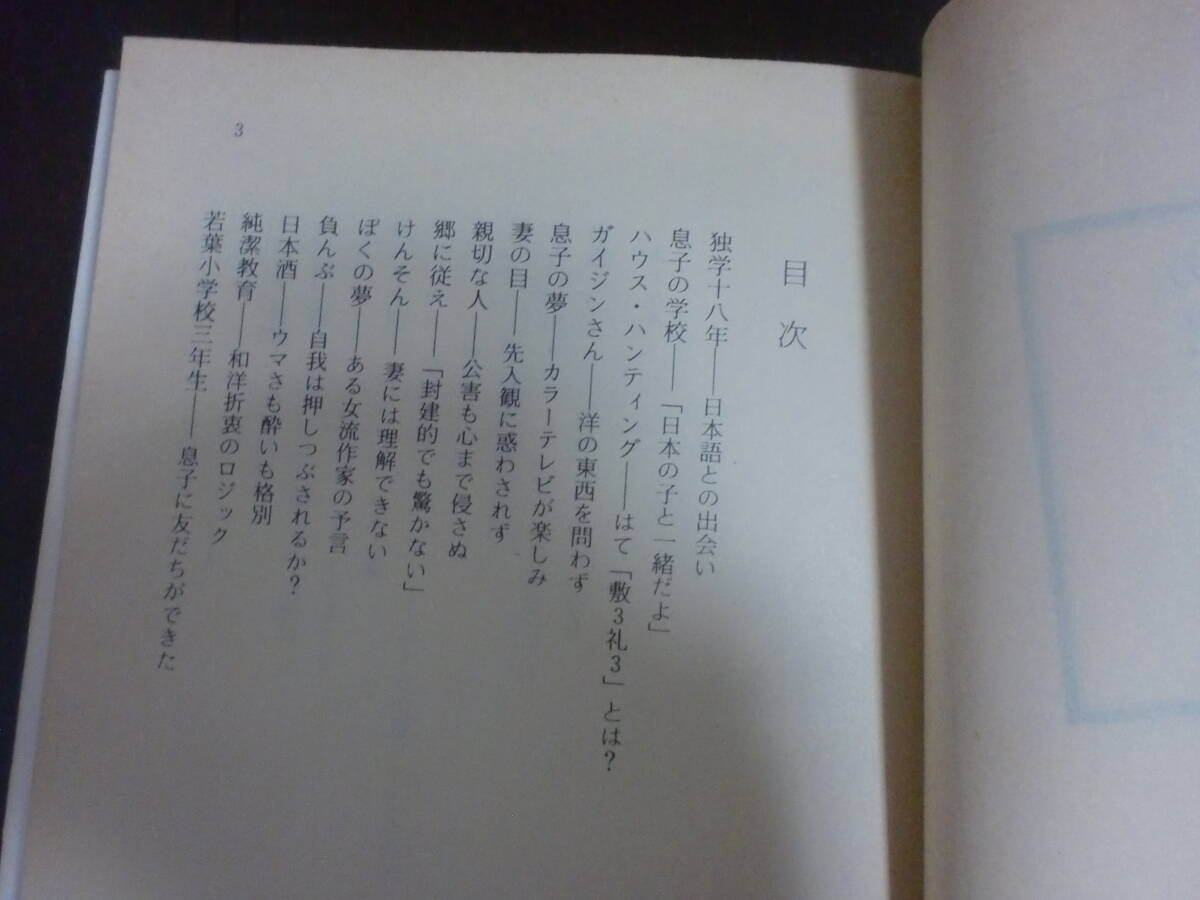 目次
独学十八年――日本語との出会い
息子の学校――「日本の子と一緒だよ」
ハウス・ハンティング――はて「敷3礼3」とは？
ガイジンさん――洋の東西を問わず
息子の夢――カラーテレビが楽しみ
妻の目――先入観に惑わされず
親切な人――公害も心まで侵さぬ
郷に従え――「封建的でも驚かない」
けんそん――妻には理解できない
ぼくの夢――ある女流作家の予言
負んぶ――自我は押しつぶされるか？
日本酒――ウマさも酔いも格別
純潔教育――和洋折衷のロジック
若葉小学校三年生――息子に友だちができた
3